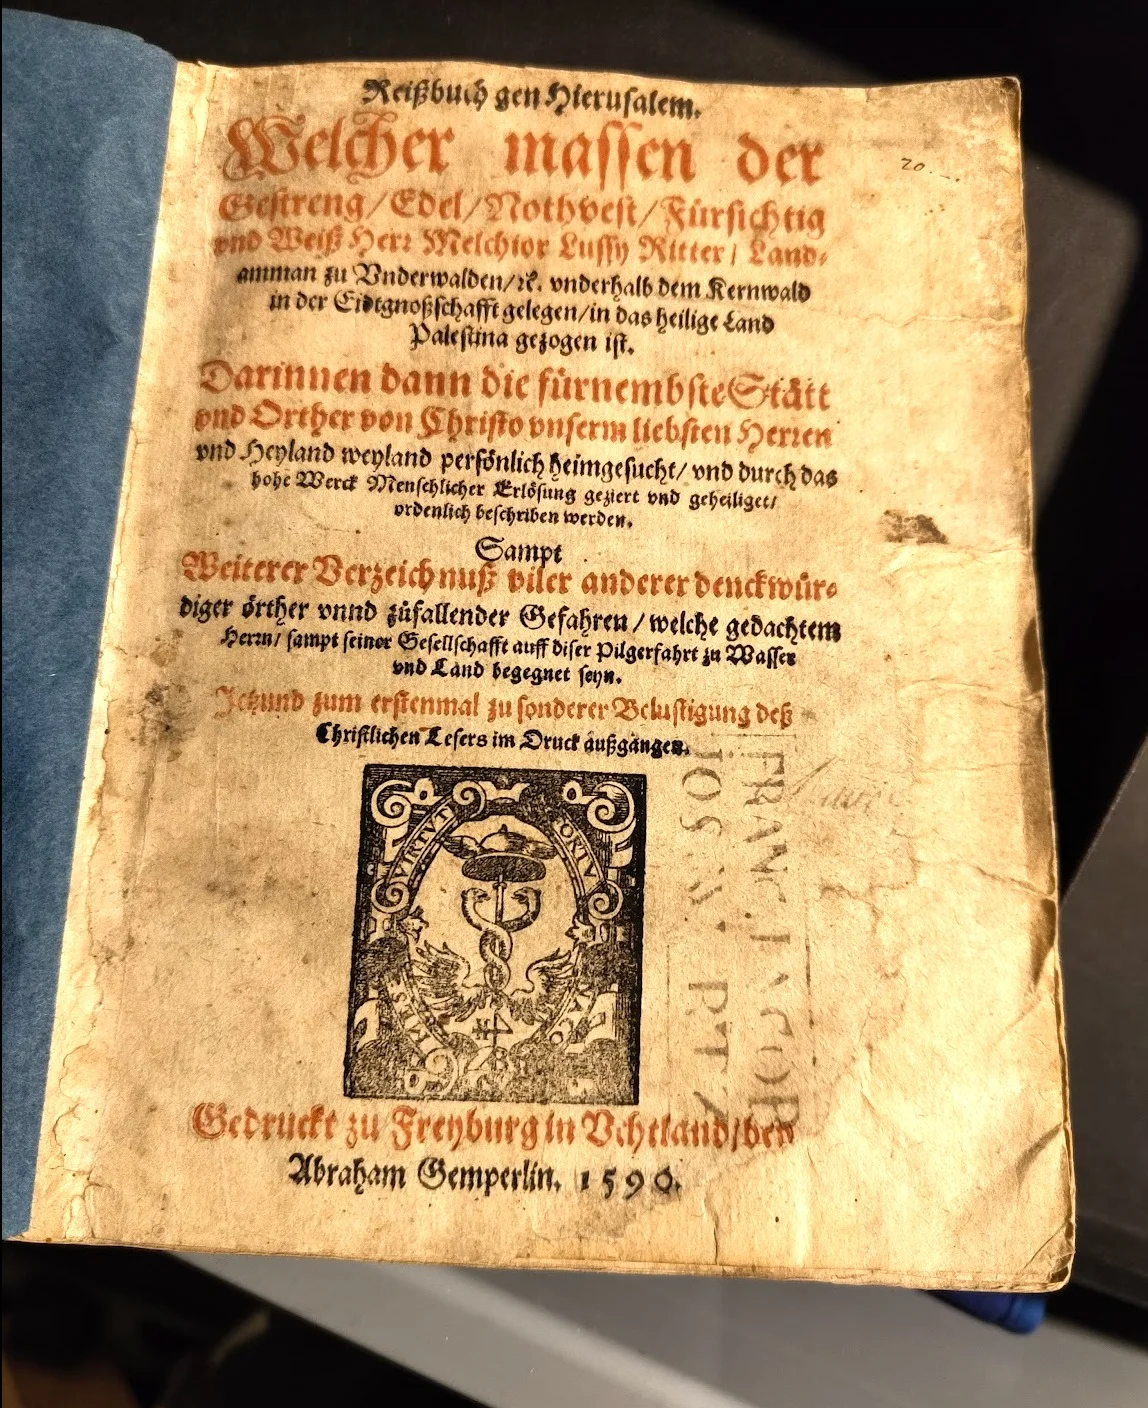 Reißbuch gen Hierusalem.
20.
Welcher massen der
Gestreng/Edel/Nothvest/Fürsichtig
vnd Weiß Herr Melchior Lussy Ritter/ Land-
amman zu Vnderwalden/ꝛc. vnderhalb dem Kernwald
in der Eidtgnoßschafft gelegen/in das heilige Land
Palestina gezogen ist.
Darinnen dann die fürnembste Stätt
vnd Orther von Christo vnserm liebsten Herren
vnd Heyland weyland persönlich heimgesucht/ vnd durch das
hohe Werck Menschlicher Erlösung geziert vnd geheiliget/
ordenlich beschriben werden.
Sampt
Weiterer Verzeichnuß viler anderer denckwür-
diger örther vnnd züfallender Gefahren/welche gedachtem
Herrn/ sampt seiner Gesellschafft auff diser Pilgerfahrt zu Wasser
vnd Land begegnet seyn.
Jetzund zum erstenmal zu sonderer Belustigung deß
Christlichen Lesers im Druck außgangen.
VIRTVT
FORTV
Gedruckt zu Freyburg in Vchtland/bey
Abraham Gemperlin. 1590.